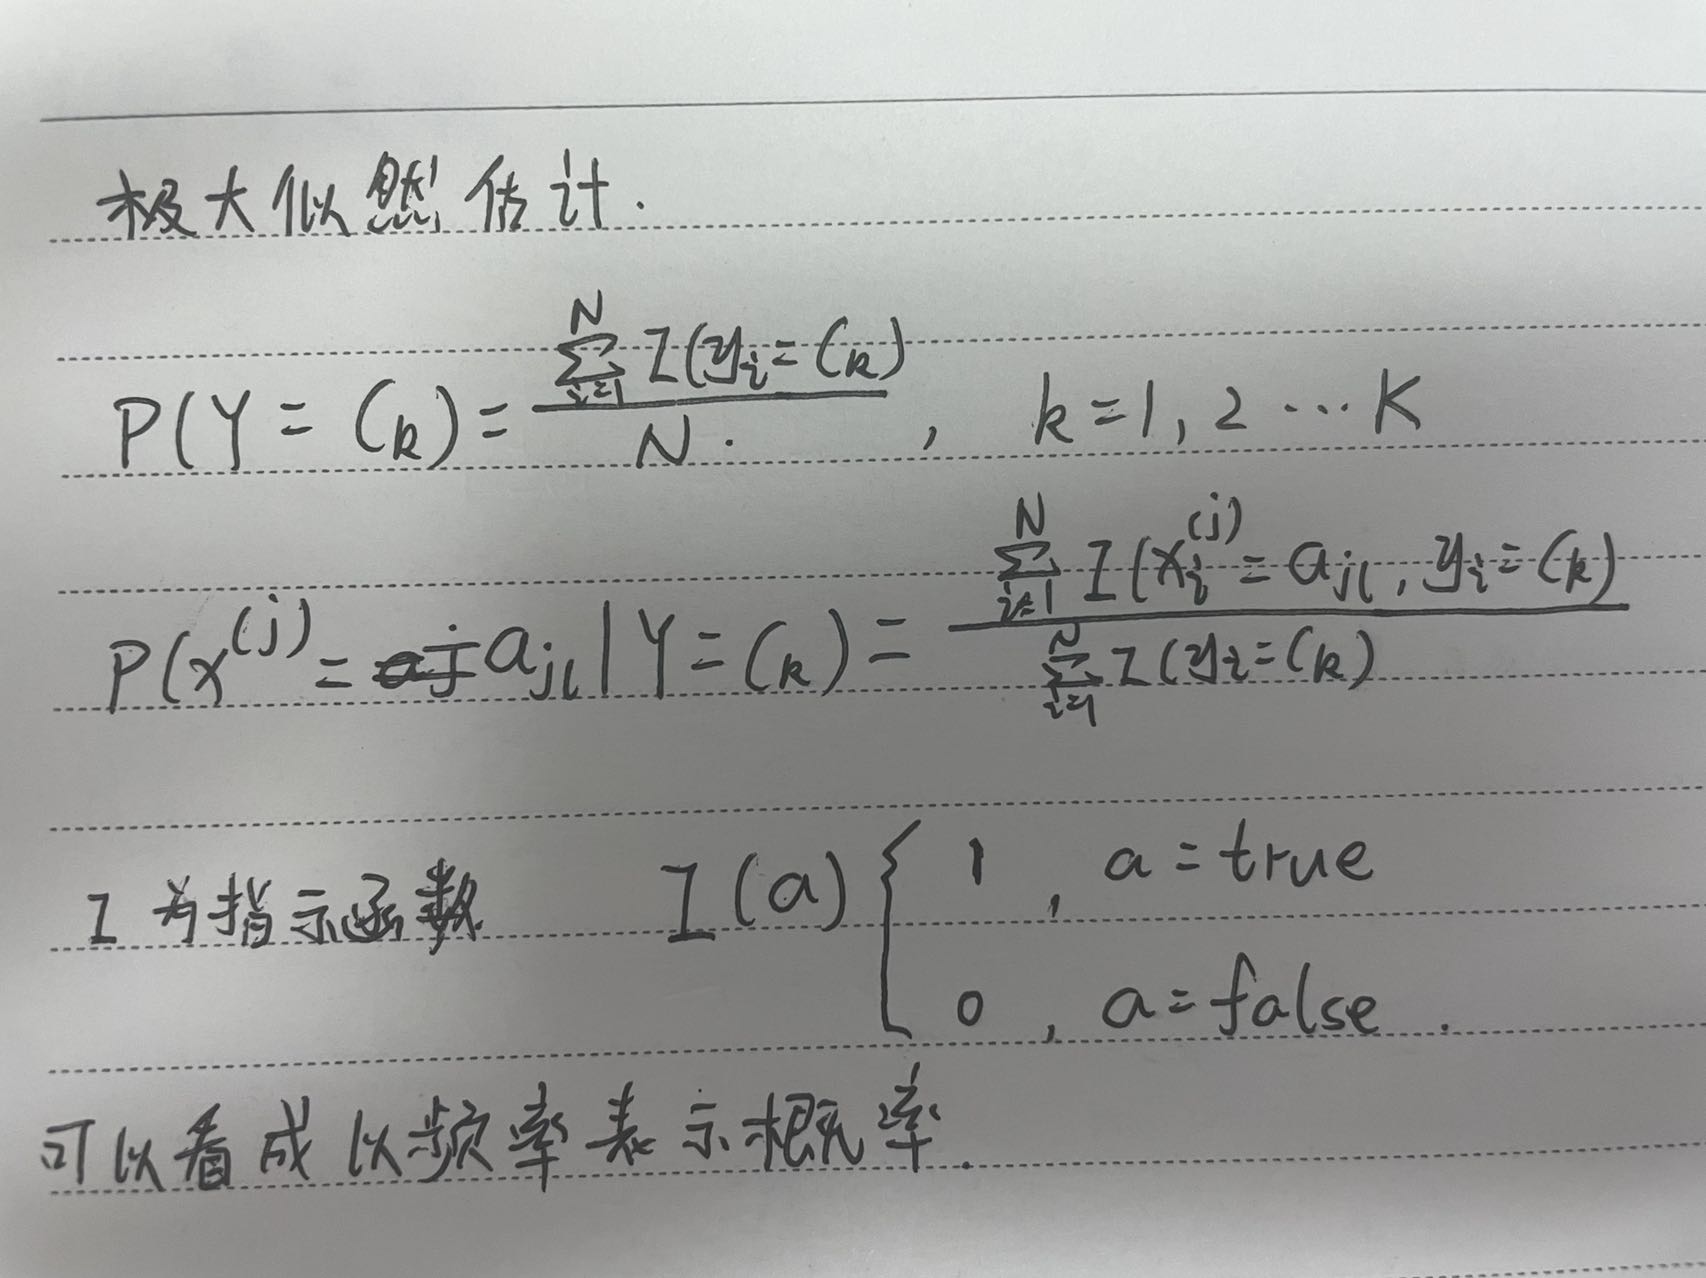 极大似然估计.
P(Y = C_k) = \frac{\sum_{i=1}^{N} I(y_i = C_k)}{N.} , k = 1, 2 ⋯ K
P(x^{(j)} = a_{jl} | Y = C_k) = \frac{\sum_{i=1}^{N} I(x_i^{(j)} = a_{jl}, y_i = C_k)}{\sum_{i=1}^{N} I(y_i = C_k)}
I 为指示函数 I(a) { 1 , a = true
0 , a = false .
可以看成以频率表示概率.